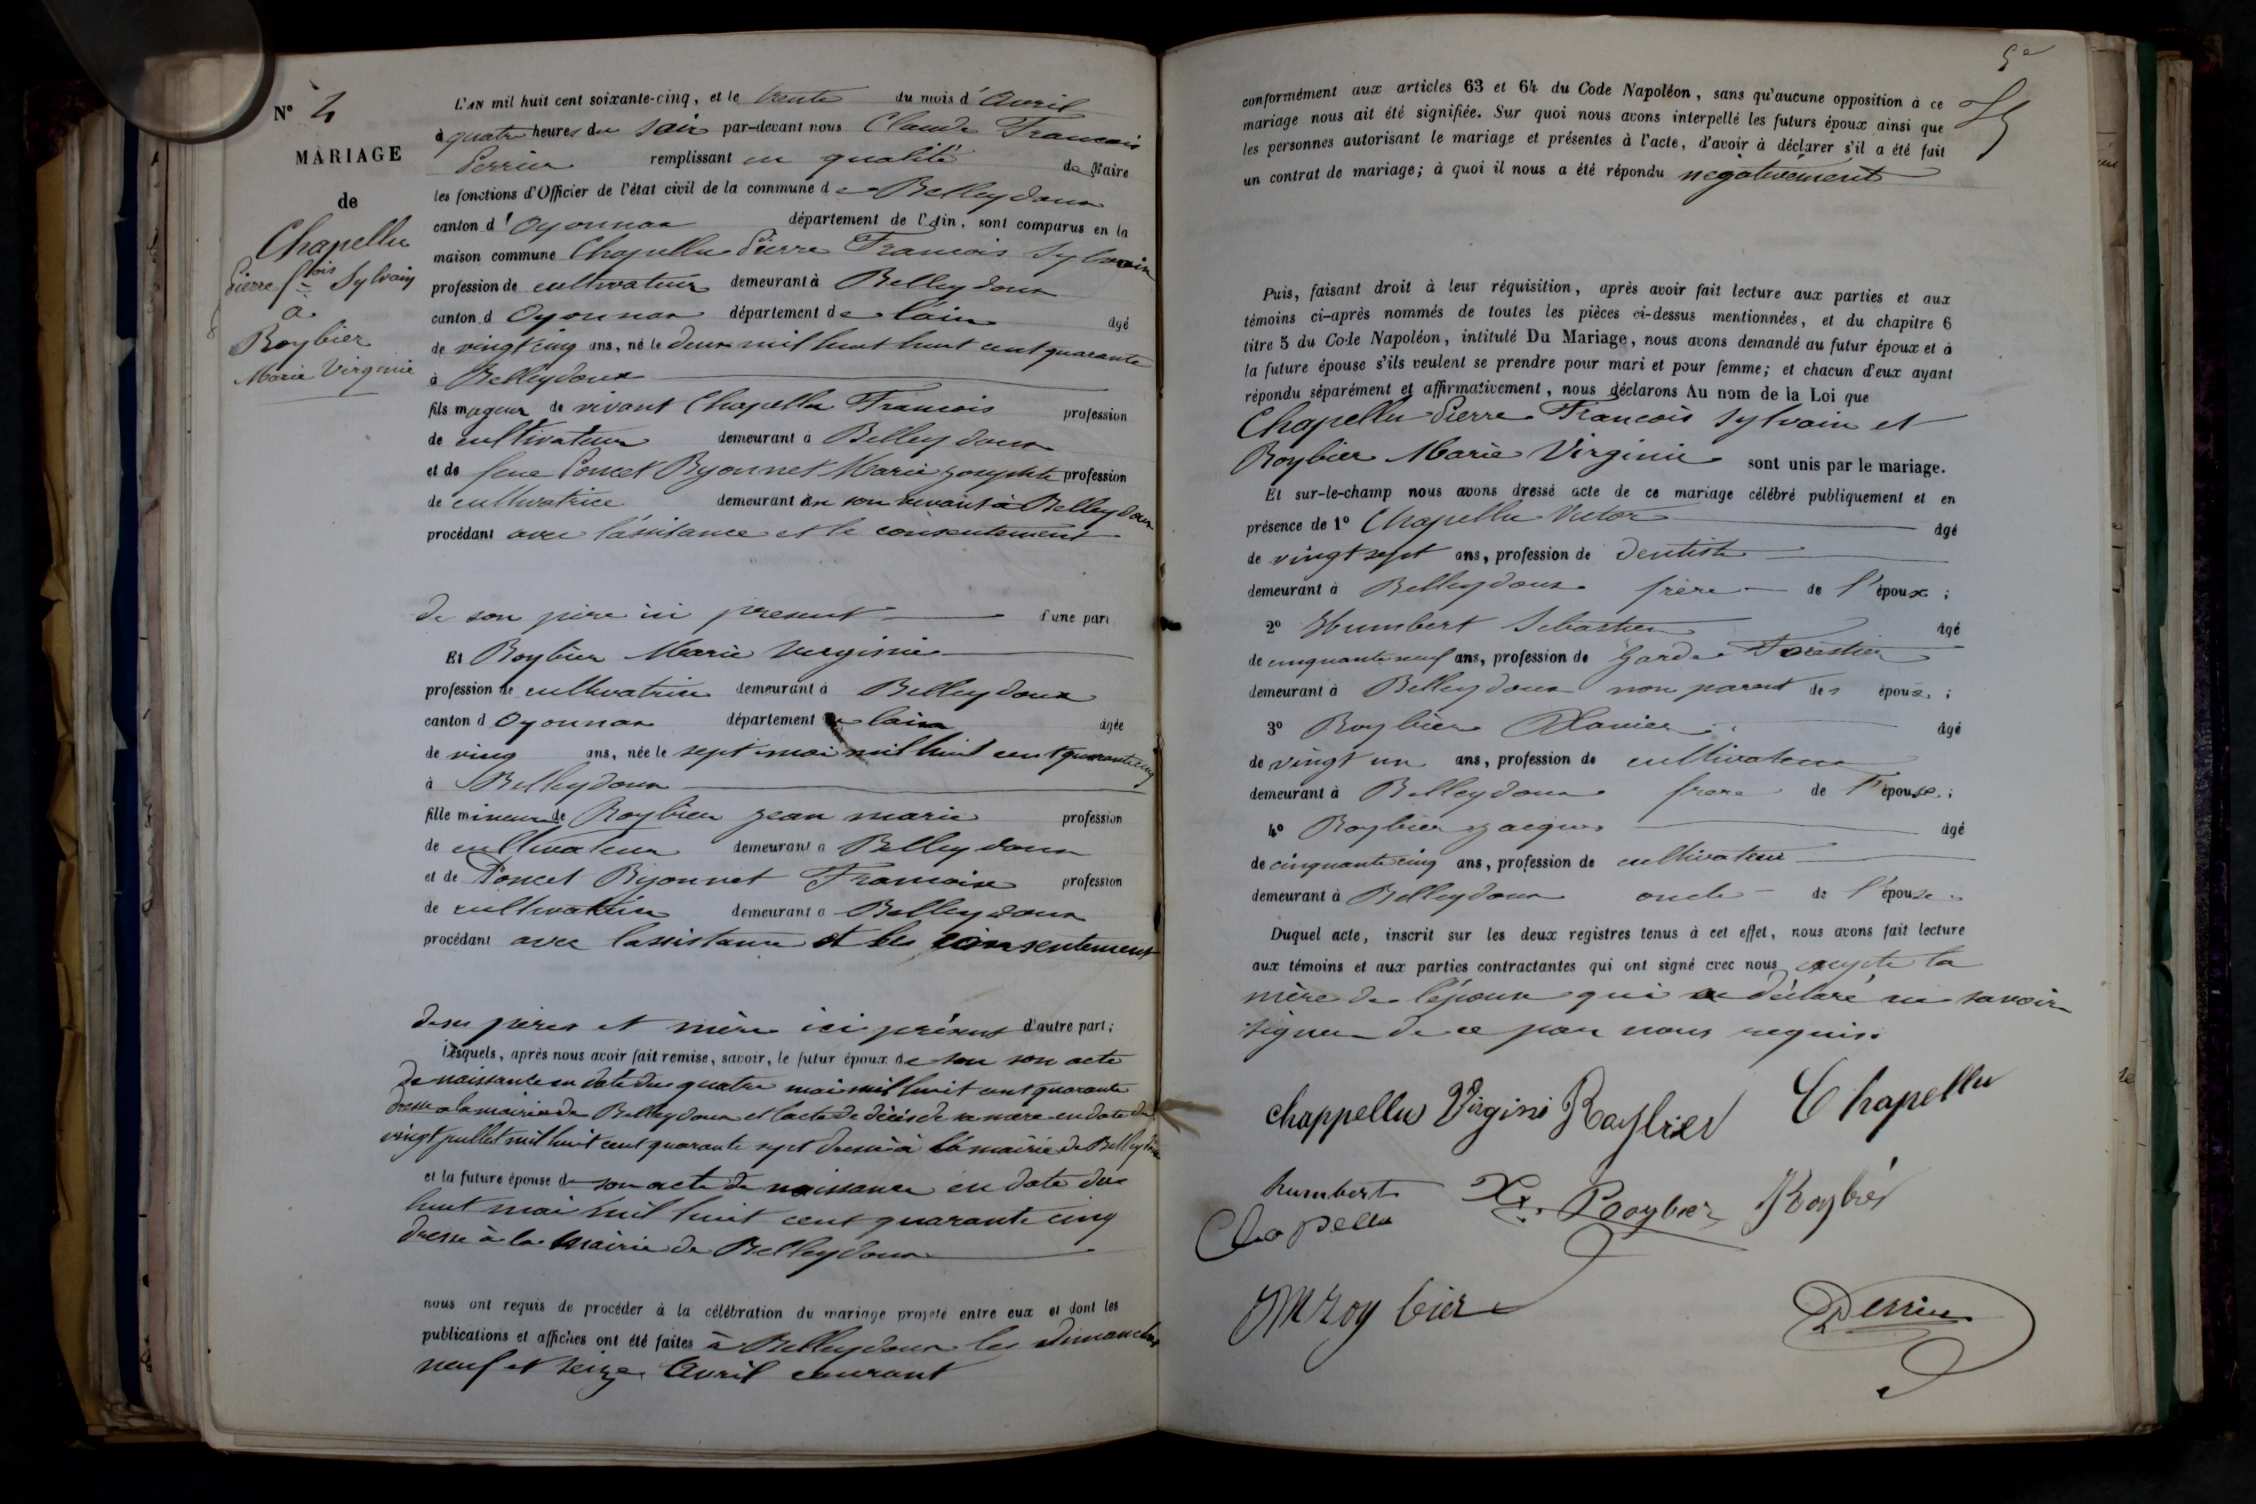 N° 4
MARIAGE
de
Chapellu
Pierre fçois Sylvain
à
Roybier
Marie Virginie
L'AN mil huit cent soixante-cinq, et le trente du mois d'Avril
à quatre heures du soir par-devant nous Claude Francois
Perrier remplissant en qualité de Maire
les fonctions d'Officier de l'état civil de la commune de Belleydoux
canton d'Oyonnax département de l'Ain, sont comparus en la
maison commune Chapellu Pierre Francois Sylvain
profession de cultivateur demeurant à Belleydoux
canton d Oyonnax département de lain âgé
de vingt cinq ans, né le deux mil huit huit cent quarante
à Belleydoux
fils mageur de vivant Chapellu Francois profession
de cultivateur demeurant à Belleydoux
et de feue Poncet Byonnet Marie Josephte profession
de cultivatrice demeurant en son vivant à Belleydoux
procédant avec l'assistance et le consentement
de son père ici present d'une part
Et Roybier Marie Virginie
profession de cultivatrice demeurant à Belleydoux
canton d Oyonnax département de lain âgée
de ving ans, née le sept mai mil huit cent quarante cinq
à Belleydoux
fille mineure de Roybier Jean marie profession
de cultivateur demeurant à Belleydoux
et de Poncet Bijonnet Francoise profession
de cultivatrice demeurant à Belleydoux
procédant avec lassistance et les consentement
de ses pères et mère ici présent d'autre part;
Lesquels, après nous avoir fait remise, savoir, le futur époux de son son acte
de naissance en date du quatre mai mil huit cent quarante
dressé a la mairie de Belleydoux et lacte de décès de sa mère en date du
vingt juillet mil huit cent quarante sept dressé à la mairie de Belleydoux
et la future épouse de son acte de naissance en date du
huit mai mil huit cent quarante cinq
dressé à la Mairie de Belleydoux
nous ont requis de procéder à la célébration du mariage projeté entre eux et dont les
publications et affiches ont été faites à Belleydoux les dimanches
neuf et seize Avril courant
5e
conformément aux articles 63 et 64 du Code Napoléon, sans qu'aucune opposition à ce
mariage nous ait été signifiée. Sur quoi nous avons interpellé les futurs époux ainsi que
les personnes autorisant le mariage et présentes à l'acte, d'avoir à déclarer s'il a été fait
un contrat de mariage; à quoi il nous a été répondu négativement
Puis, faisant droit à leur réquisition, après avoir fait lecture aux parties et aux
témoins ci-après nommés de toutes les pièces ci-dessus mentionnées, et du chapitre 6
titre 5 du Code Napoléon, intitulé Du Mariage, nous avons demandé au futur époux et à
la future épouse s'ils veulent se prendre pour mari et pour femme; et chacun d'eux ayant
répondu séparément et affirmativement, nous déclarons Au nom de la Loi que
Chapellu Pierre Francois Sylvain et
Roybier Marie Virginie sont unis par le mariage.
Et sur-le-champ nous avons dressé acte de ce mariage célébré publiquement et en
présence de 1° Chapellu Victor âgé
de vingt sept ans, profession de dentiste
demeurant à Belleydoux frère de l'époux;
2° Humbert Sébastien âgé
de cinquante neuf ans, profession de Garde Forestier
demeurant à Belleydoux non parent des époux;
3° Roybier Xavier âgé
de vingt un ans, profession de cultivateur
demeurant à Belleydoux frere de l'épouse;
4° Roybier Jacques âgé
de cinquante cinq ans, profession de cultivateur
demeurant à Belleydoux oncle de l'épouse
Duquel acte, inscrit sur les deux registres tenus à cet effet, nous avons fait lecture
aux témoins et aux parties contractantes qui ont signé avec nous excepté la
mère de l'époux qui a déclaré ne savoir
signer de ce par nous requis.
Chappellu Virgini Roybier Chapellu
humbert Xr. Roybier JRoybié
Chapellu
JMroybier Perrier